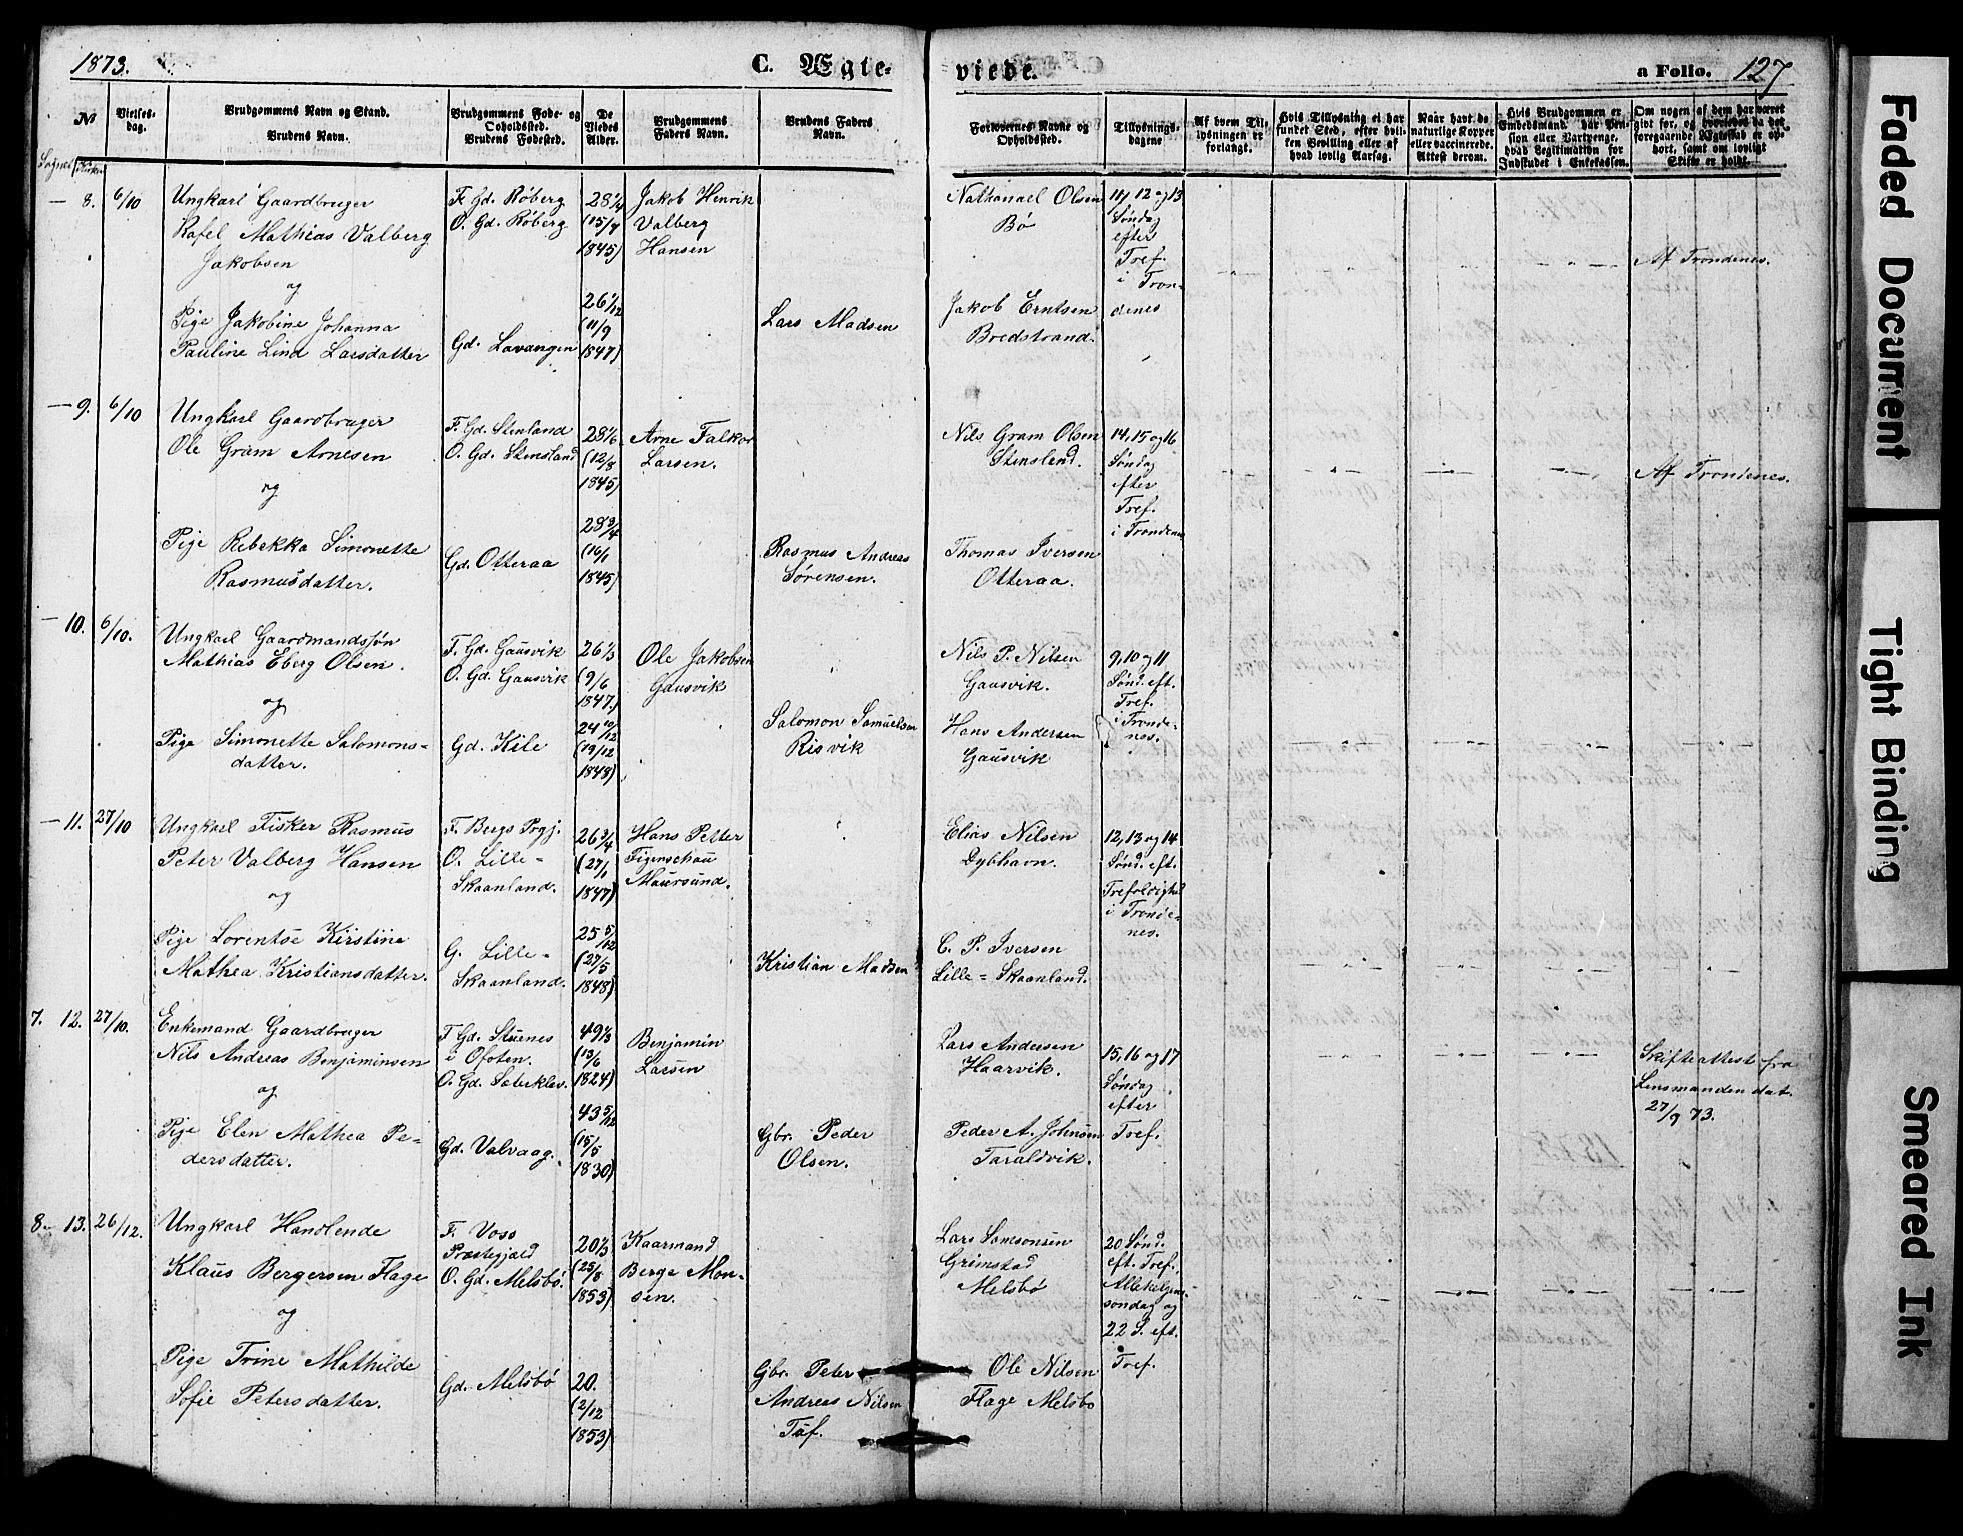 1873.
C. Ægte-
viede.
a Folio. 127
№
Vielses-
dag.
Brudgommens Navn og Stand.
Brudens Navn.
Brudgommens Føde- og
Opholdssted.
Brudens Fødested.
De
Viedes
Alder.
Brudgommens
Faders Navn.
Brudens Faders
Navn.
Forlovernes Navne og
Opholdssted.
Tillysnings-
dagene
Af hvem Til-
lysningen er
forlangt.
Hvis Tillysning ei har
fundet Sted, efter hvil-
ken Bevilling eller af
hvad lovlig Aarsag.
Naar havt de
naturlige Kopper
eller vaccinerede.
Attest derom.
Hvis Brudgommen er
Embedsmand, har Pen-
sion eller Vartpenge,
hvad Legitimation for
Indskudet i Enkekassen.
Om nogen af dem har været
gift før, og hvorledes da det
foregaaende Ægteskab er op-
hørt, samt om lovligt
Skifte er holdt.
— 8. 6/10
Ungkarl Gaardbruger
Rafel Mathias Valberg
Jakobsen
og
Pige Jakobine Johanna
Pauline Lind Larsdatter
F. Gd. Røberg
O. Gd. Røberg
Gd. Lavangen
28 1/4
(15/7
1845)
26 1/12
(11/9
1847)
Jakob Henrik
Valberg
Hansen
Lars Madsen
Nathanael Olsen
Bø
Jakob Erntsen
Bredstrand.
11, 12 og 13
Søndag
efter
Tref.
i Tron-
denes
Af Trondenes.
— 9. 6/10
Ungkarl Gaardbruger
Ole Gram Arnesen
og
Pige Rebekka Simonette
Rasmusdatter.
F. Gd. Stenland
O. Gd. Stensland
Gd. Otteraa
28 1/6
(12/8
1845)
28 3/4
(16/1
1845)
Arne Falkor
Larsen.
Rasmus Andreas
Sørensen.
Nils Gram Olsen
Stensland.
Thomas Iversen
Otteraa.
14, 15 og 16
Søndag
efter
Tref.
i Trondenes
Af Trondenes.
— 10. 6/10.
Ungkarl Gaardmandssøn
Mathias Eberg Olsen.
og
Pige Simonette Salomons-
datter.
F. Gd. Gausvik
O. Gd. Gausvik
Gd. Kile
26 1/3
(9/6
1847.)
24 10/12
(19/12
1848)
Ole Jakobsen
Gausvik
Salomon Samuelsen
Risvik
Nils P. Nilsen
Gausvik.
Hans Andersen
Gausvik
9, 10 og 11
Sønd. eft.
Tref.
i Tronde-
nes.
— 11. 27/10
Ungkarl Fisker Rasmus
Peter Valberg Hansen
og
Pige Lorentse Kirstine
Mathea Kristiansdatter.
F. Bergs Prgj.
O. Lille-
Skaanland.
G. Lille-
Skaanland.
26 3/4
(27/1
1847)
25 5/12
(27/5
1848)
Hans Petter
Figenschau
Maursund.
Kristian Madsen
Elias Nilsen
Dybhavn.
C. P. Iversen
Lille-Skaanland.
12, 13 og 14
Sønd. eft.
Trefoldighed
i Tronde-
nes.
7. 12. 27/10.
Enkemand Gaardbruger
Nils Andreas Benjaminsen
og
Pige Elen Mathea Pe-
dersdatter.
F. Gd. Skuenes
i Ofoten.
O. Gd. Sæterklev.
Gd. Valvaag.
49 1/3
(13/6
1824)
43 5/12
(15/5
1830)
Benjamin
Larsen
Gbr. Peder
Olsen.
Lars Andersen
Haarvik.
Peder A. Johnsen
Taraldvik.
15, 16 og 17
Søndag
efter
Tref.
Skifteattest fra
Lensmanden dat.
27/9 73.
8. 13. 26/12.
Ungkarl Handlende
Klaus Bergersen Flage
og
Pige Trine Mathilde
Sofie Petersdatter.
F. Voss
Præstegjæld
O. Gd. Melsbø.
Gd. Melsbø
20 1/3
(25/8
1853)
20.
(2/12
1853)
Kaarmand
Berge Mon-
sen.
Gbr. Peter
Andreas Nilsen
Tuf.
Lars Samsonsen
Grimstad
Melsbø
Ole Nilsen
Flage Melsbo
20 Sønd.
eft. Tref.,
Allehelgens-
sondag og
22 S. eft.
Tref.
Faded Document
Tight Binding
Smeared Ink